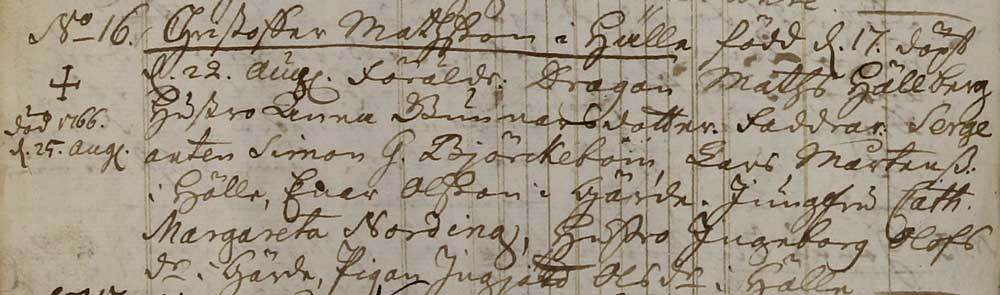 No 16. Christoffer Mathsson i Hälle född d. 17. döpt
d. 22. Aug. Föräldr. Dragon Maths Hällberg
död 1766.
d. 25. Aug.
Hustro Anna Gunnarsdotter. Faddrar. Serge
anten Simon G. Björckebom, Lars Mårtenss.
i Hälle, Evar Olsson i Gärde. Jungfru Cath.
Margareta Nording, Hustro Ingeborg Olofs
dr i Gärde, Pigan Olsdr i Hälle